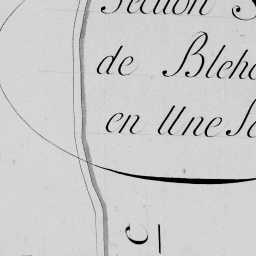 Section
de Bleh
en Une